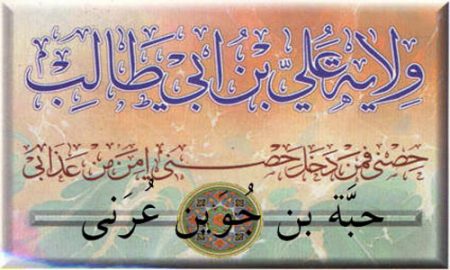 ولایة علي بن أبي طالب
حصني فمن دخل حصني أمن من عذابي
حبَّة بن جُوَین عُرَنی